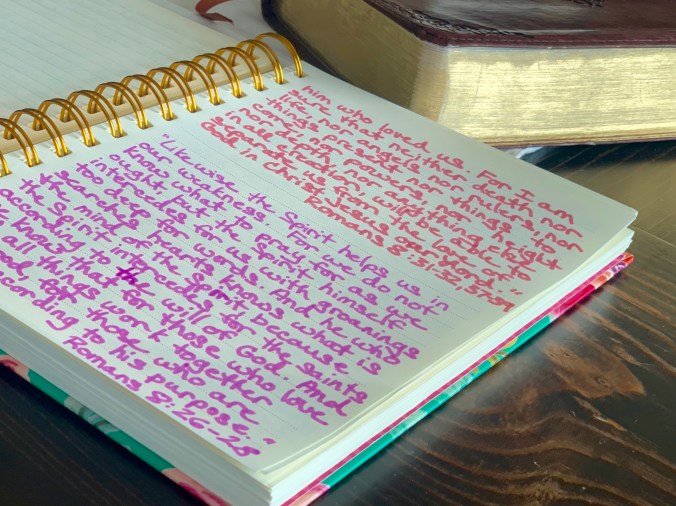 him who loved us. For I am
sure that neither death nor
life, nor angels nor rulers nor
things present nor things to
come, nor powers, nor height
nor depth, nor anything else
in all creation, will be able to
separate us from the love of
God in Christ Jesus our Lord."
Romans 8:31-32, 37-39
"Likewise the Spirit helps us in
our weakness. For we do not
know what to pray for as we
ought, but the Spirit himself
intercedes for us with groanings
too deep for words. And he who
searches hearts knows what is
the mind of the Spirit, because
the Spirit intercedes for the saints
according to the will of God. And
we know that for those who love
God all things work together
for those who are
according to his purpose."
Romans 8:26-28